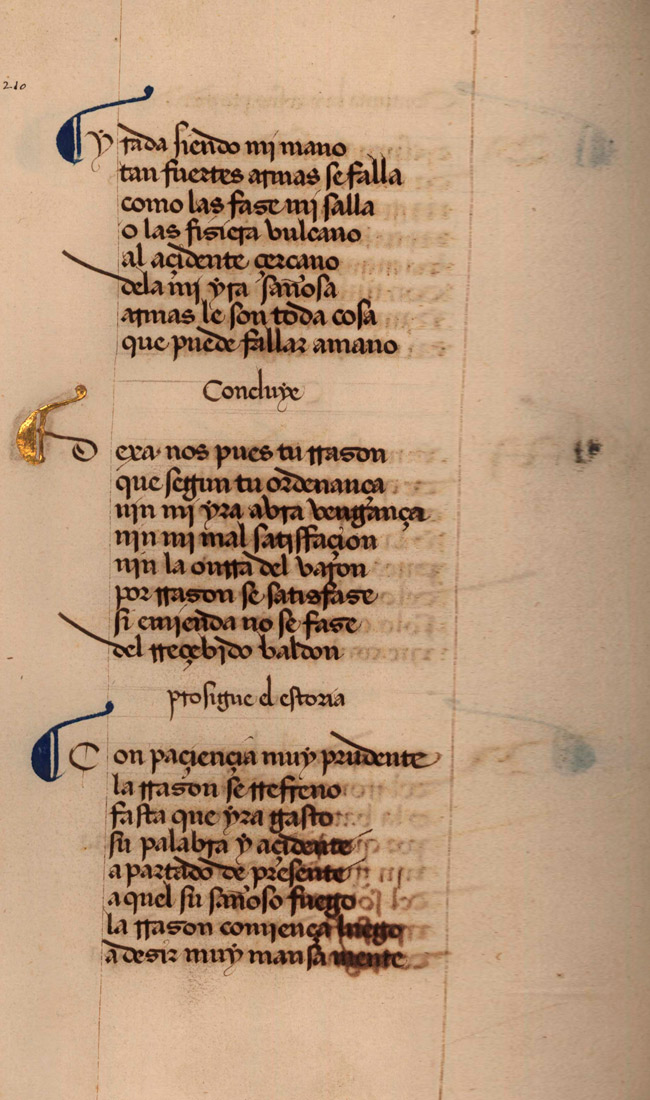 210
yrada siendo mi mano
tan fuertes armas se falla
como las fase mi salla
o las fisiera vulcano
al açidente çercano
dela mi yra sañosa
armas le son toda cosa
que puede fallar amano
Concluye
Dexa nos pues tu rrason
que segun tu ordenança
nin mi yra abra vengança
nin mi mal satisffaçion
nin la onrra del varon
por rrason se satisfase
si emienda no se fase
del rreçebido baldon
prosigue el estoria
Con paçiençia muy prudente
la rrason se rrefreno
fasta que yra gasto
su palabra y açidente
apartado de presente
aquel su sañoso fuego
la rrason comiença luego
a desir muy mansa mente